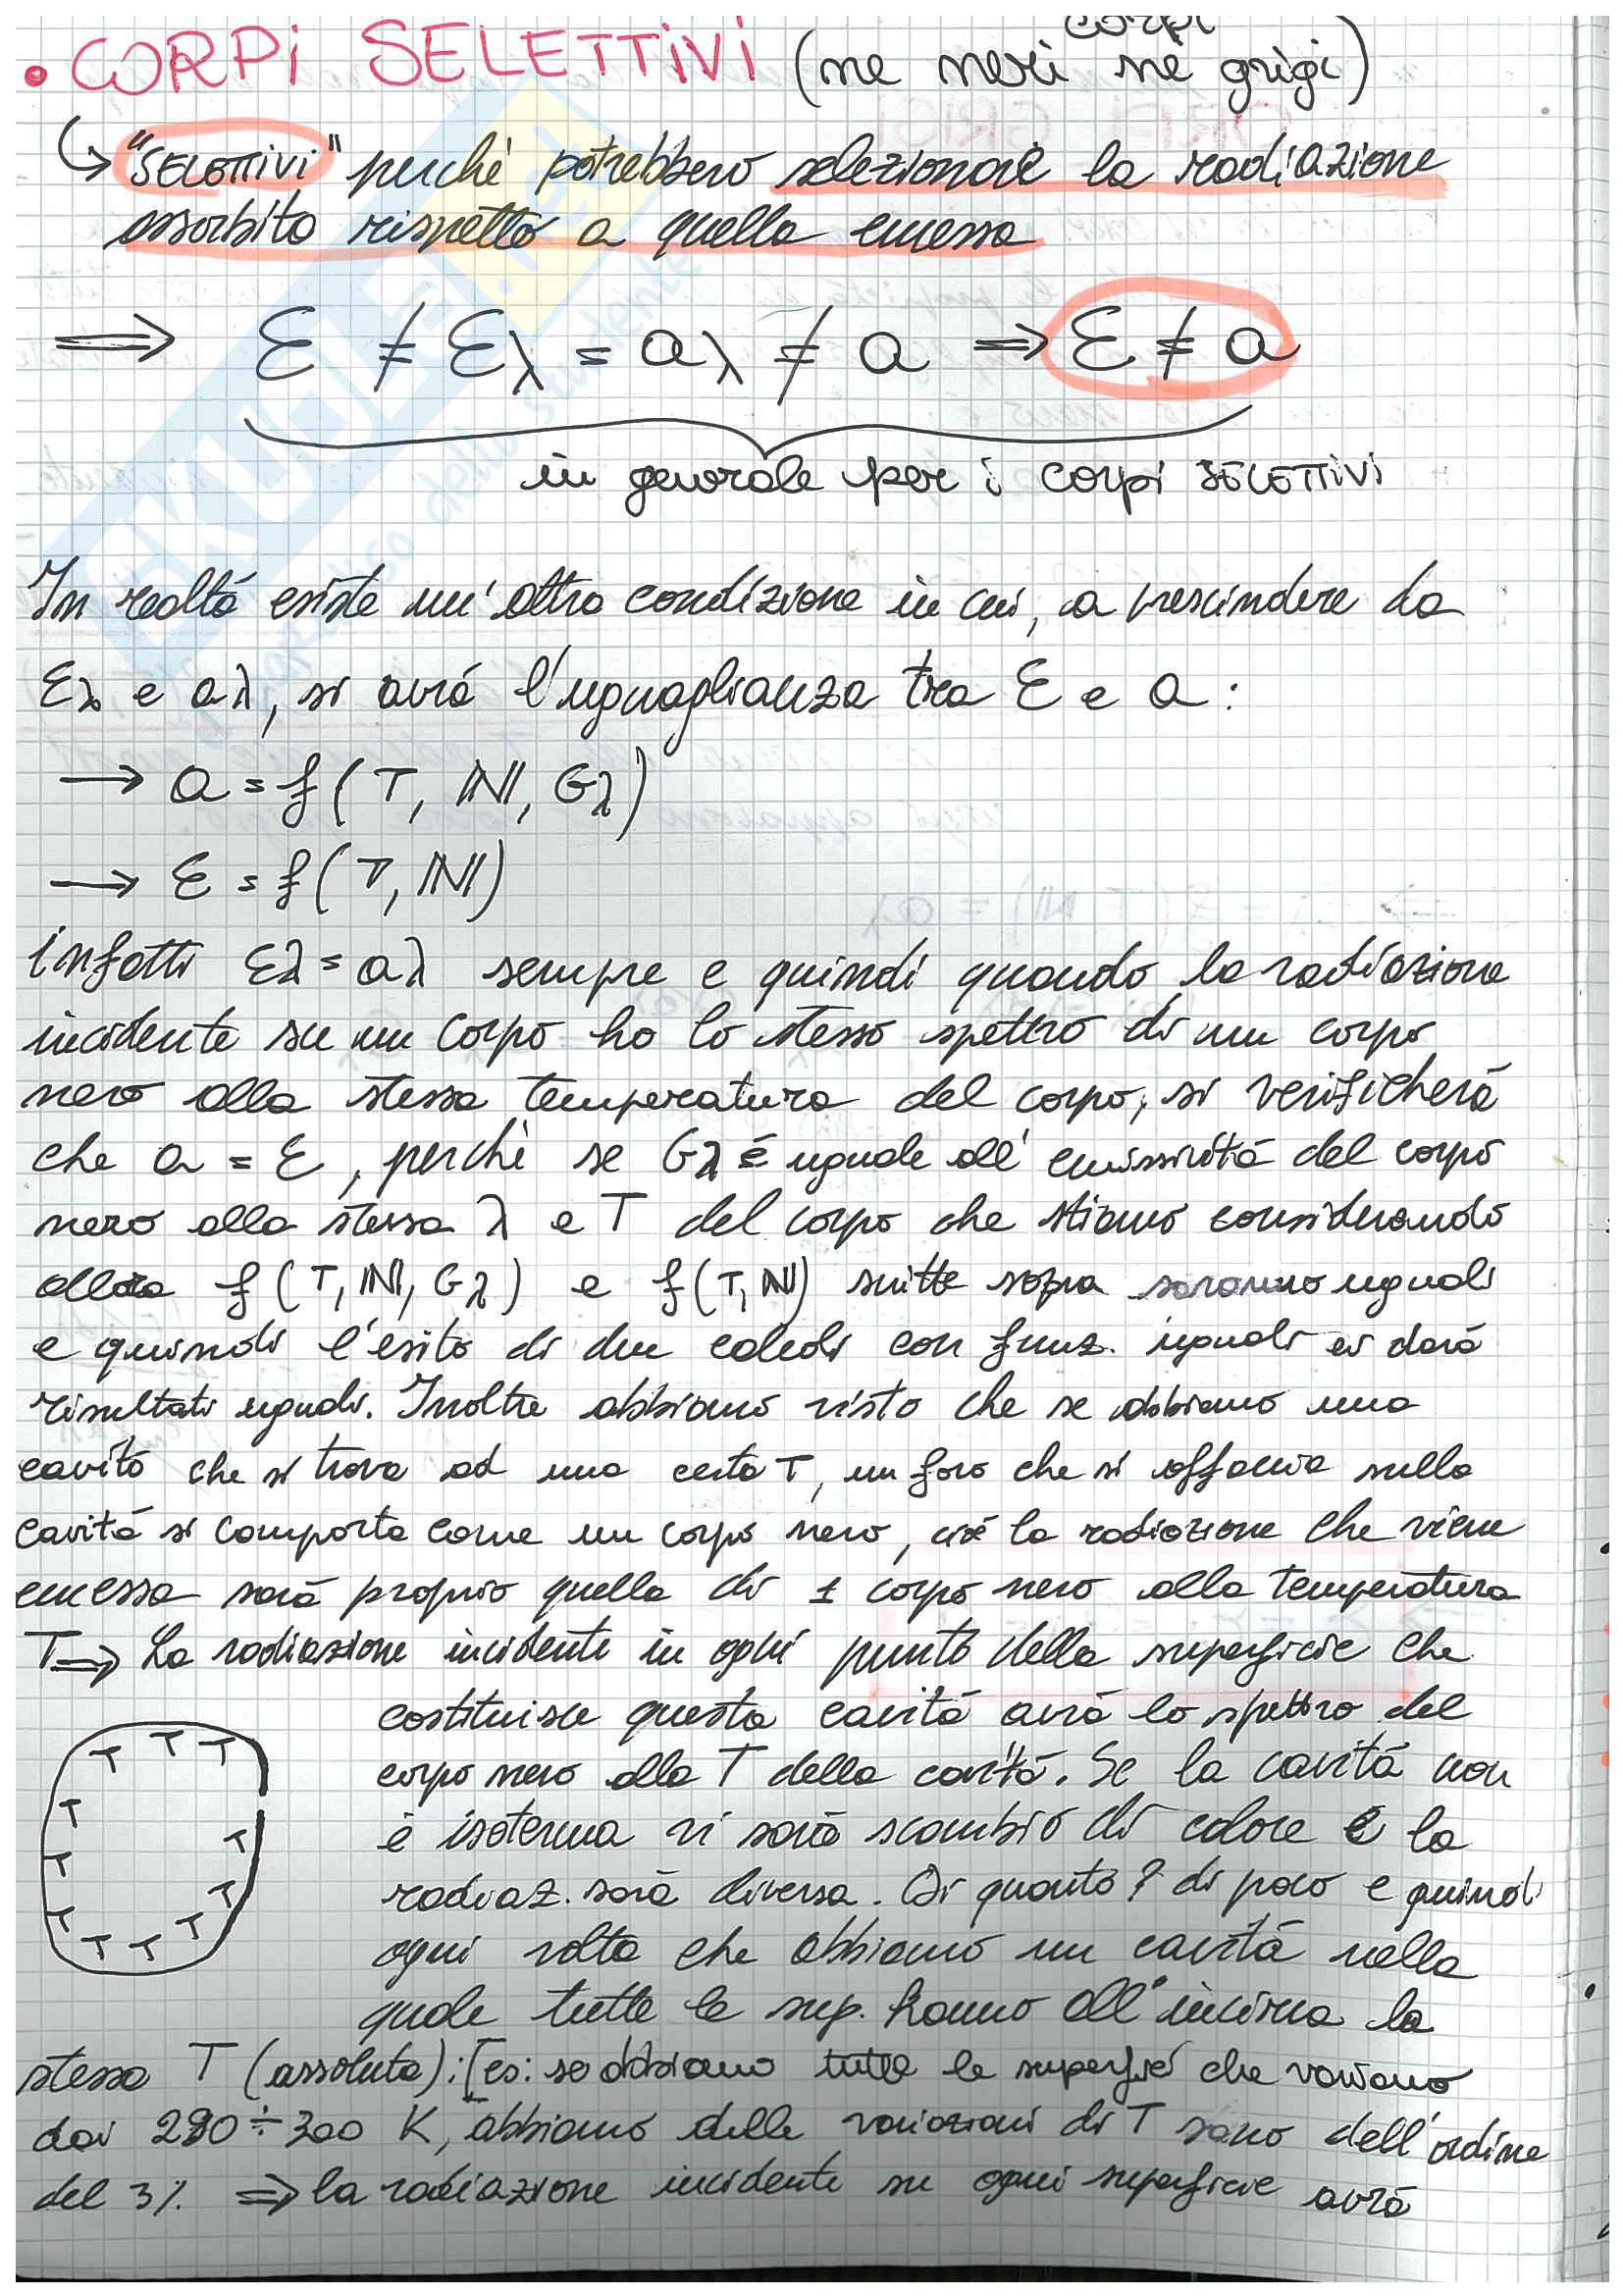 corpi
• CORPI SELETTIVI (ne neri nè grigi)
↳ "SELETTIVI" perchè potrebbero selezionare la radiazione
assorbita rispetto a quella emessa
⇒ Ɛ ≠ Ɛλ = aλ ≠ a ⇒ Ɛ ≠ a
in generale per i corpi SELETTIVI
In realtá esiste un'altra condizione in cui, a prescindere da
Ɛλ e aλ, si avrá l'uguaglianza tra Ɛ e a :
→ a = f(T, |N|, Gλ)
→ Ɛ = f(T, |N|)
infatti Ɛλ = aλ sempre e quindi quando la radiazione
incidente su un corpo ha lo stesso spettro di un corpo
nero alla stessa temperatura del corpo, si verificherá
che a = Ɛ, perchè se Gλ è uguale all' emissivitá del corpo
nero alla stessa λ e T del corpo che stiamo considerando
allora f(T, |N|, Gλ) e f(T, |N|) scritte sopra saranno uguali
e quindi l'esito di due calcoli con funz. uguali ci dará
risultati uguali. Inoltre abbiamo visto che se abbiamo una
cavitá che si trova ad una certa T, un foro che si affaccia sulla
cavitá si comporta come un corpo nero, cioè la radiazione che viene
emessa sará proprio quella di 1 corpo nero alla temperatura
T ⇒ La radiazione incidente in ogni punto della superficie che
costituisce questa cavitá avrá lo spettro del
corpo nero alla T della cavitá. Se la cavitá non
è isoterma vi sará scambio di calore e la
radiaz. sará diversa. Di quanto? di poco e quindi
ogni volta che abbiamo un cavitá nella
quale tutte le sup. hanno all'incirca la
T T T
T
T
T
T
T T
T T T
stessa T (assoluta): [es: se abbiamo tutte le superfici che variano
dai 290 ÷ 300 K, abbiamo delle variazioni di T sono dell'ordine
del 3% ⇒ la radiazione incidente su ogni superficie avrá